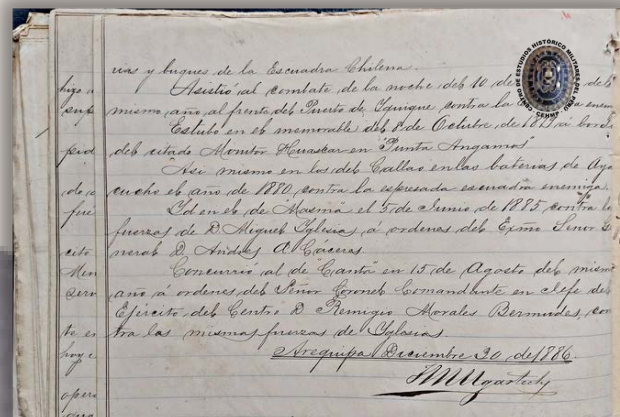 rias y buques de la Escuadra Chilena.
Asistió al combate de la noche del 10 de del
mismo año al frente del Puerto de Iquique contra la enem
Estubo en el memorable del 8 de Octubre de 1879 á bordo
del citado Monitor Huascar en "Punta Angamos"
Asi mismo en los del Callao en las baterias de Aya
cucho el año de 1880, contra la espresada escuadra enemiga.
Id en el de "Masma" el 5 de Junio de 1885 contra la
fuerzas de D Miguel Yglesias, á ordenes del Exmo Señor Ge
neral D Andres A Cáceres
Concurrió al de "Canta" en 15 de Agosto del mismo
año á ordenes del Señor Coronel Comandante en Jefe del
Ejército del Centro D Remigio Morales Bermudes, con
tra las mismas fuerzas de Yglesias
Arequipa Diciembre 30 de 1886.
CENTRO DE ESTUDIOS HISTÓRICO MILITARES DEL PERÚ
CEHMP